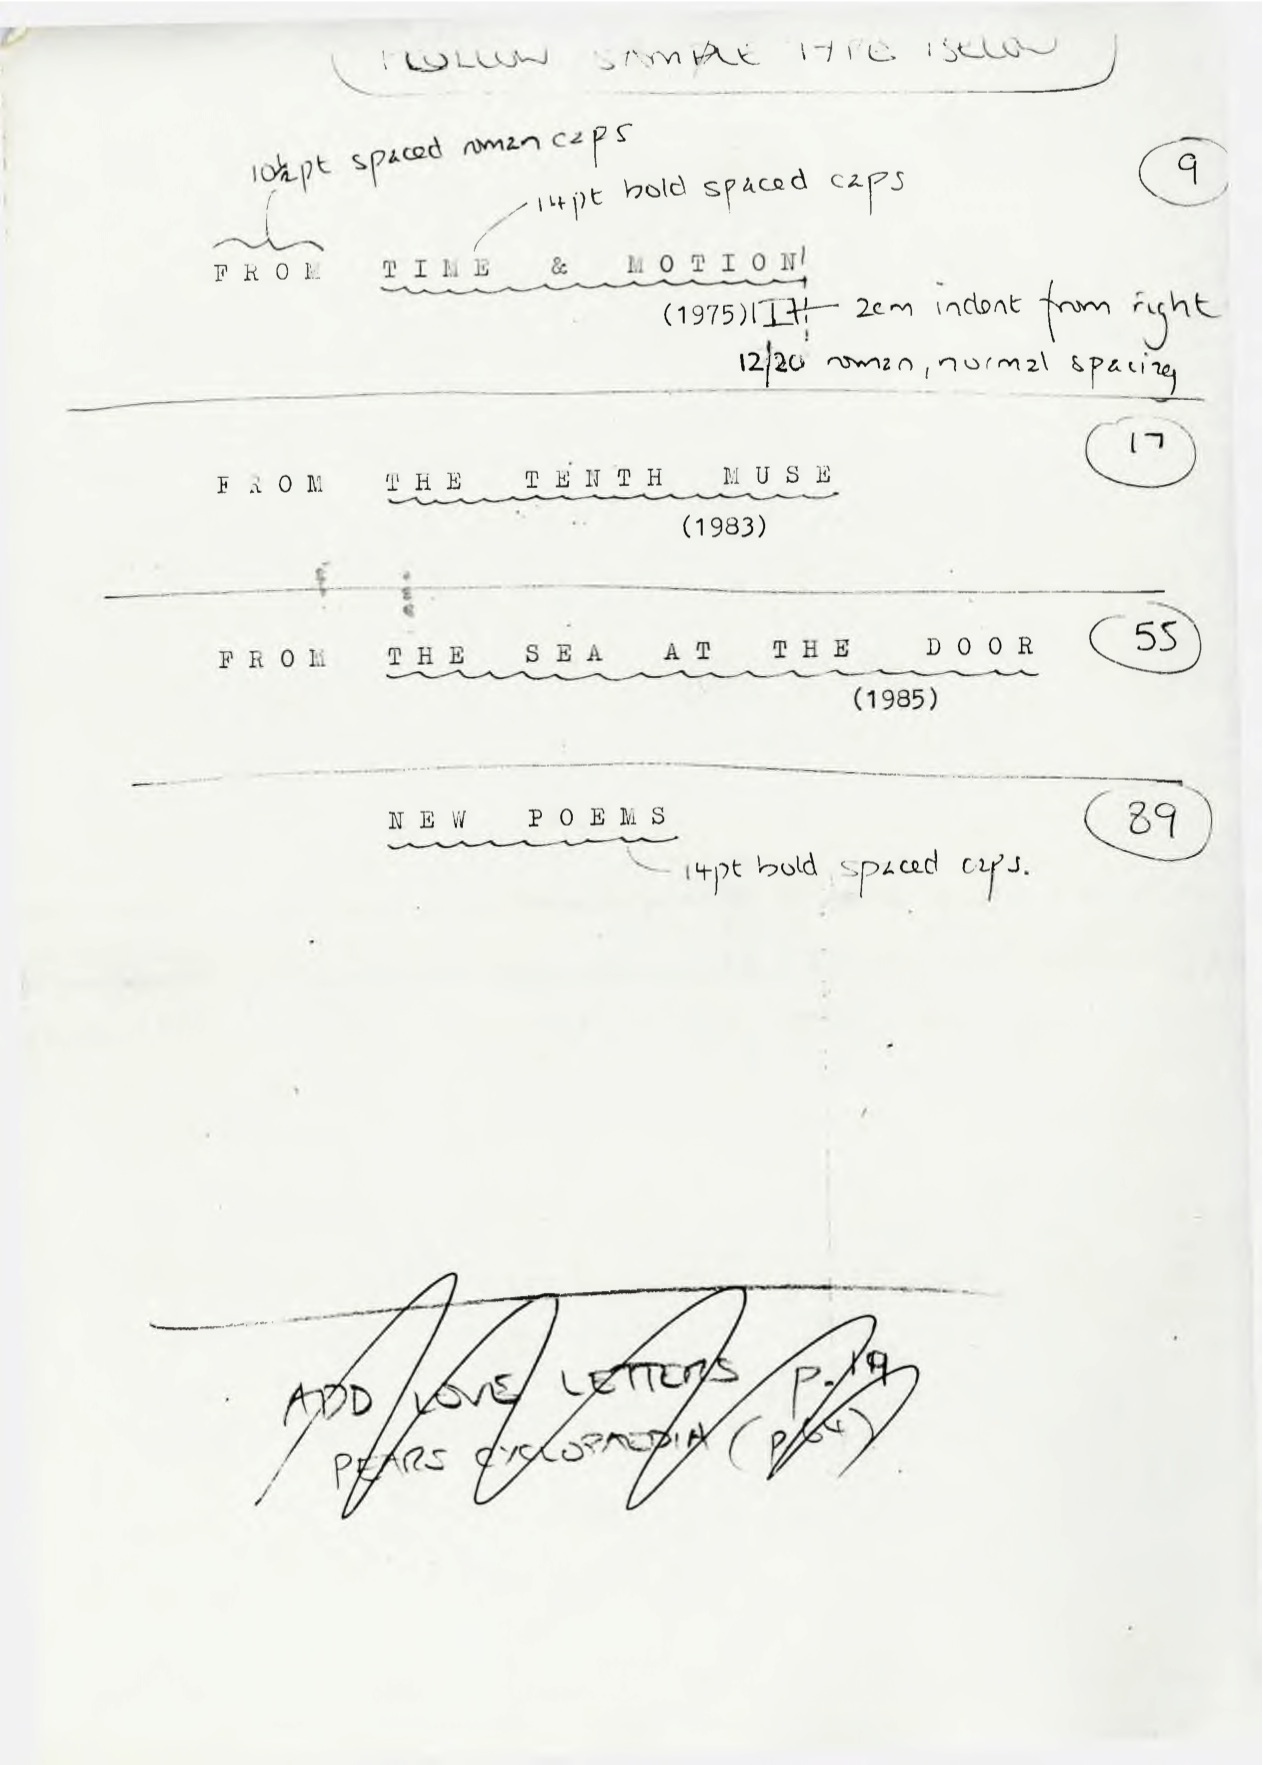 FOLLOW SAMPLE TYPE BELOW
10½pt spaced roman caps
14pt bold spaced caps
9
FROM TIME & MOTION
(1975) 2cm indent from right
12/20 roman, normal spacing
17
FROM THE TENTH MUSE
(1983)
FROM THE SEA AT THE DOOR 55
(1985)
NEW POEMS 89
14pt bold spaced caps.
ADD LOVE LETTERS p.19
PEARS CYCLOPAEDIA (p64)